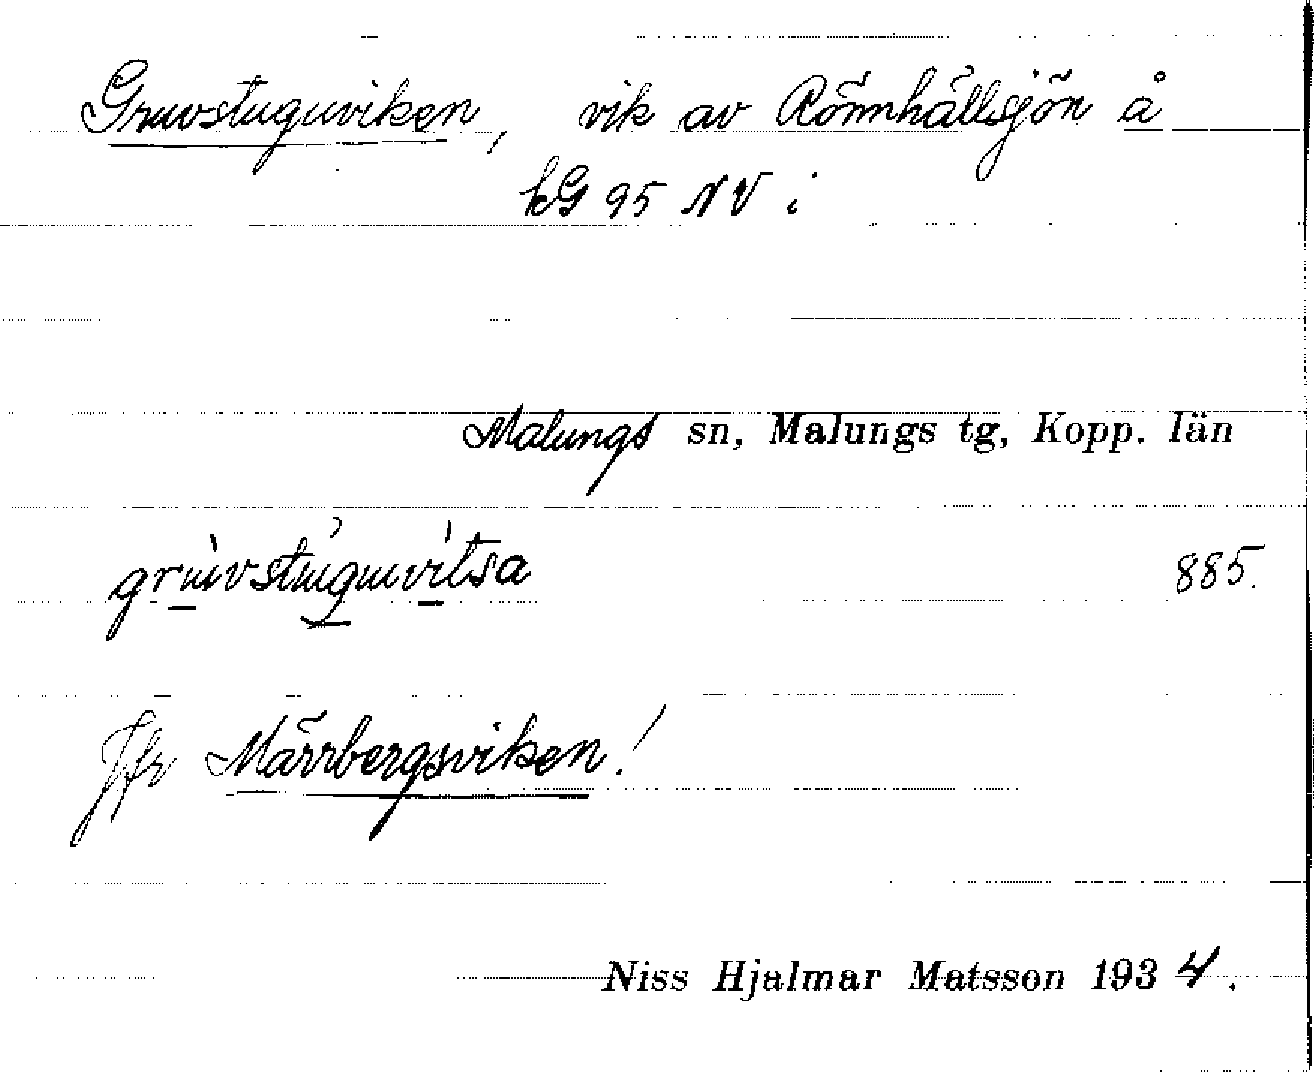 Gruvstuguviken, vik av Rönnhällsjön å
kG 95 NV i
Malungs sn, Malungs tg, Kopp. län
gruvstuguvitsa 885.
Jfr Märrbergsviken!
Niss Hjalmar Matsson 1934.